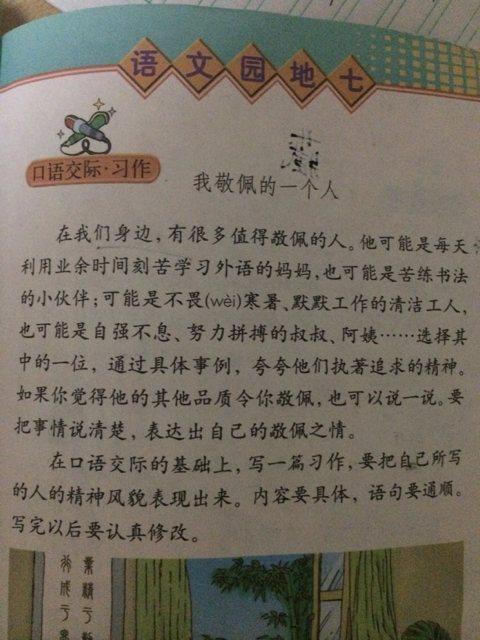 语文园地七
口语交际·习作
我敬佩的一个人
在我们身边，有很多值得敬佩的人。他可能是每天
利用业余时间刻苦学习外语的妈妈，也可能是苦练书法
的小伙伴；可能是不畏(wèi)寒暑、默默工作的清洁工人，
也可能是自强不息、努力拼搏的叔叔、阿姨……选择其
中的一位，通过具体事例，夸夸他们执著追求的精神。
如果你觉得他的其他品质令你敬佩，也可以说一说。要
把事情说清楚，表达出自己的敬佩之情。
在口语交际的基础上，写一篇习作，要把自己所写
的人的精神风貌表现出来。内容要具体，语句要通顺。
写完以后要认真修改。
业精于
行成于